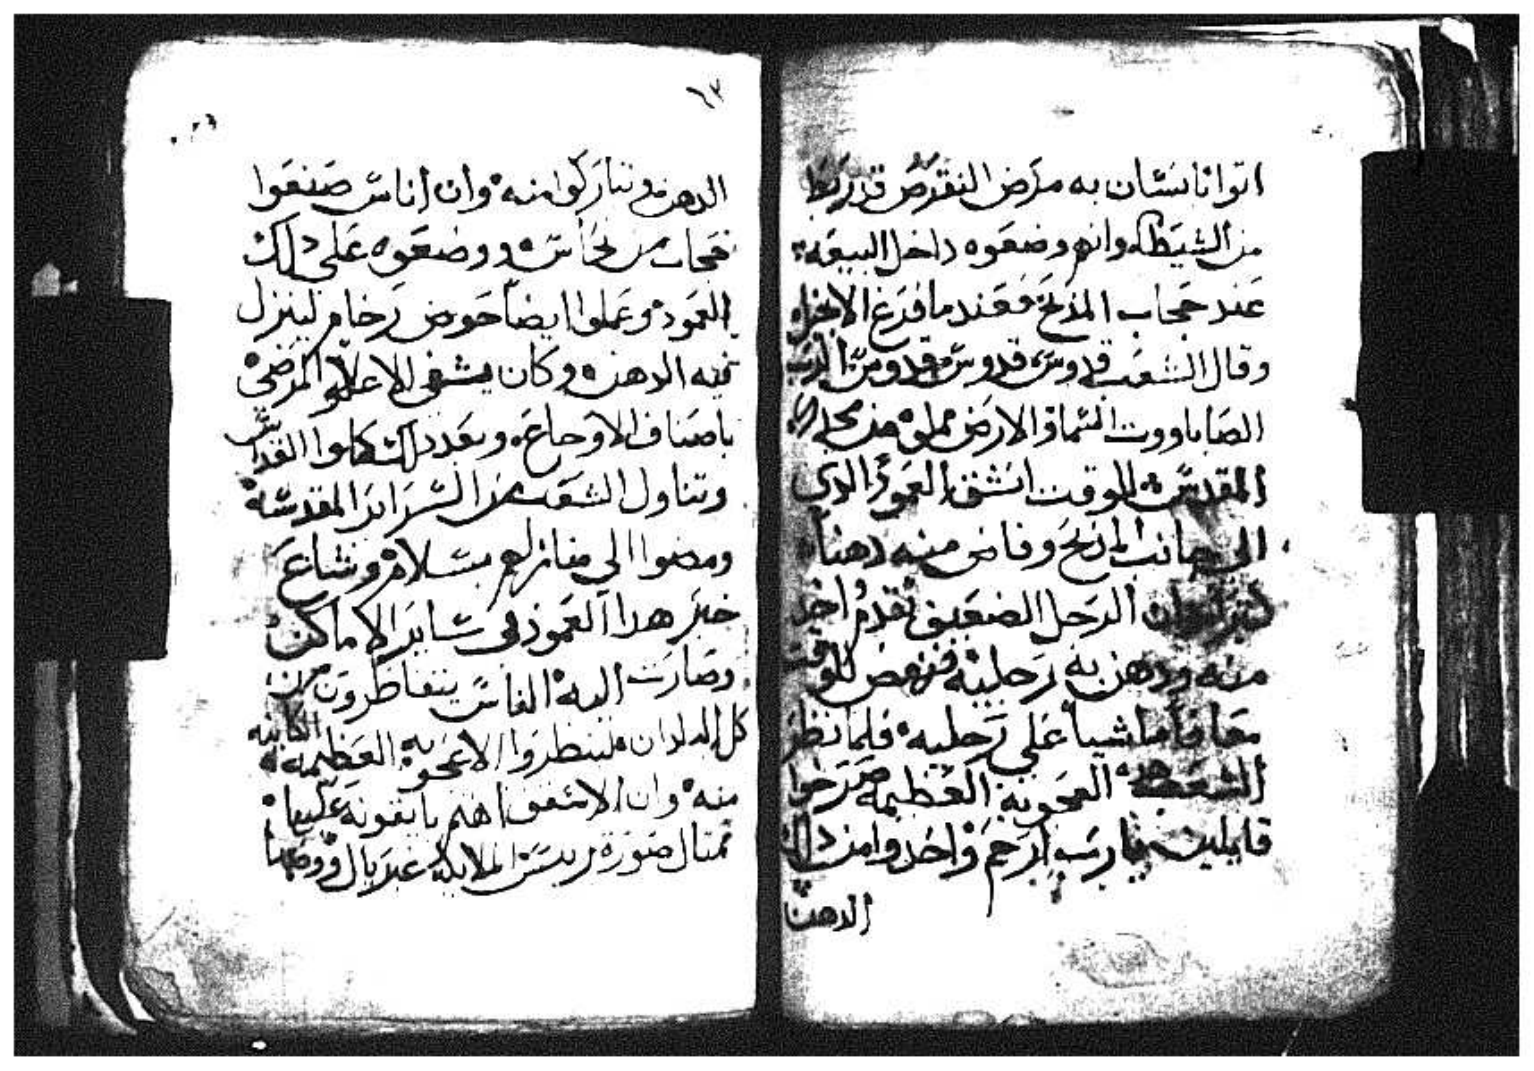 اتوا بانسان به مرض النقرص قد ربط
من الشيطان وانهم وضعوه داخل البيعه
عند حجاب المذبح فعند ما فرغ الابخراه
وقال الشعب قدوس قدوس قدوس الرب
الصاباووت السما والارض مملوه من مجدك
المقدس للوقت انشق العمود الدي
الى جانب المذبح وفاض منه دهنا
كتير وان الرجل الضعيف تقدم اخد
منه ودهن به رجليه فنهض للوقت
معافا ماشيا على رجليه فلما نظر
الشعب هده العجوبه العظيمه صرخوا
قايلين يا رب ارحم واخدوا من دلك
الدهن
٦٣
الدهن وتباركوا منه وان اناس صنعوا
من نحاس ووضعوه على دلك
العمود وعملوا ايضا حوض رخام لينزل
فيه الدهن وكان يشفى الاعلا المرضى
باصناف الاوجاع وبعد دلك كملوا القداس
وتناول الشعب من السراير المقدسه
ومضوا الى منازلهم بسلام وشاع
خبر هدا العمود فى ساير الاماكن
وصارت اليه الناس يتقاطرون من
كل البلدان لينظروا الاعجوبه العظيمه الكاينه
منه وان الاسقف اهتم بايقونه عليها
تمتال صورة رييس الملايكه غبريال ووضعها